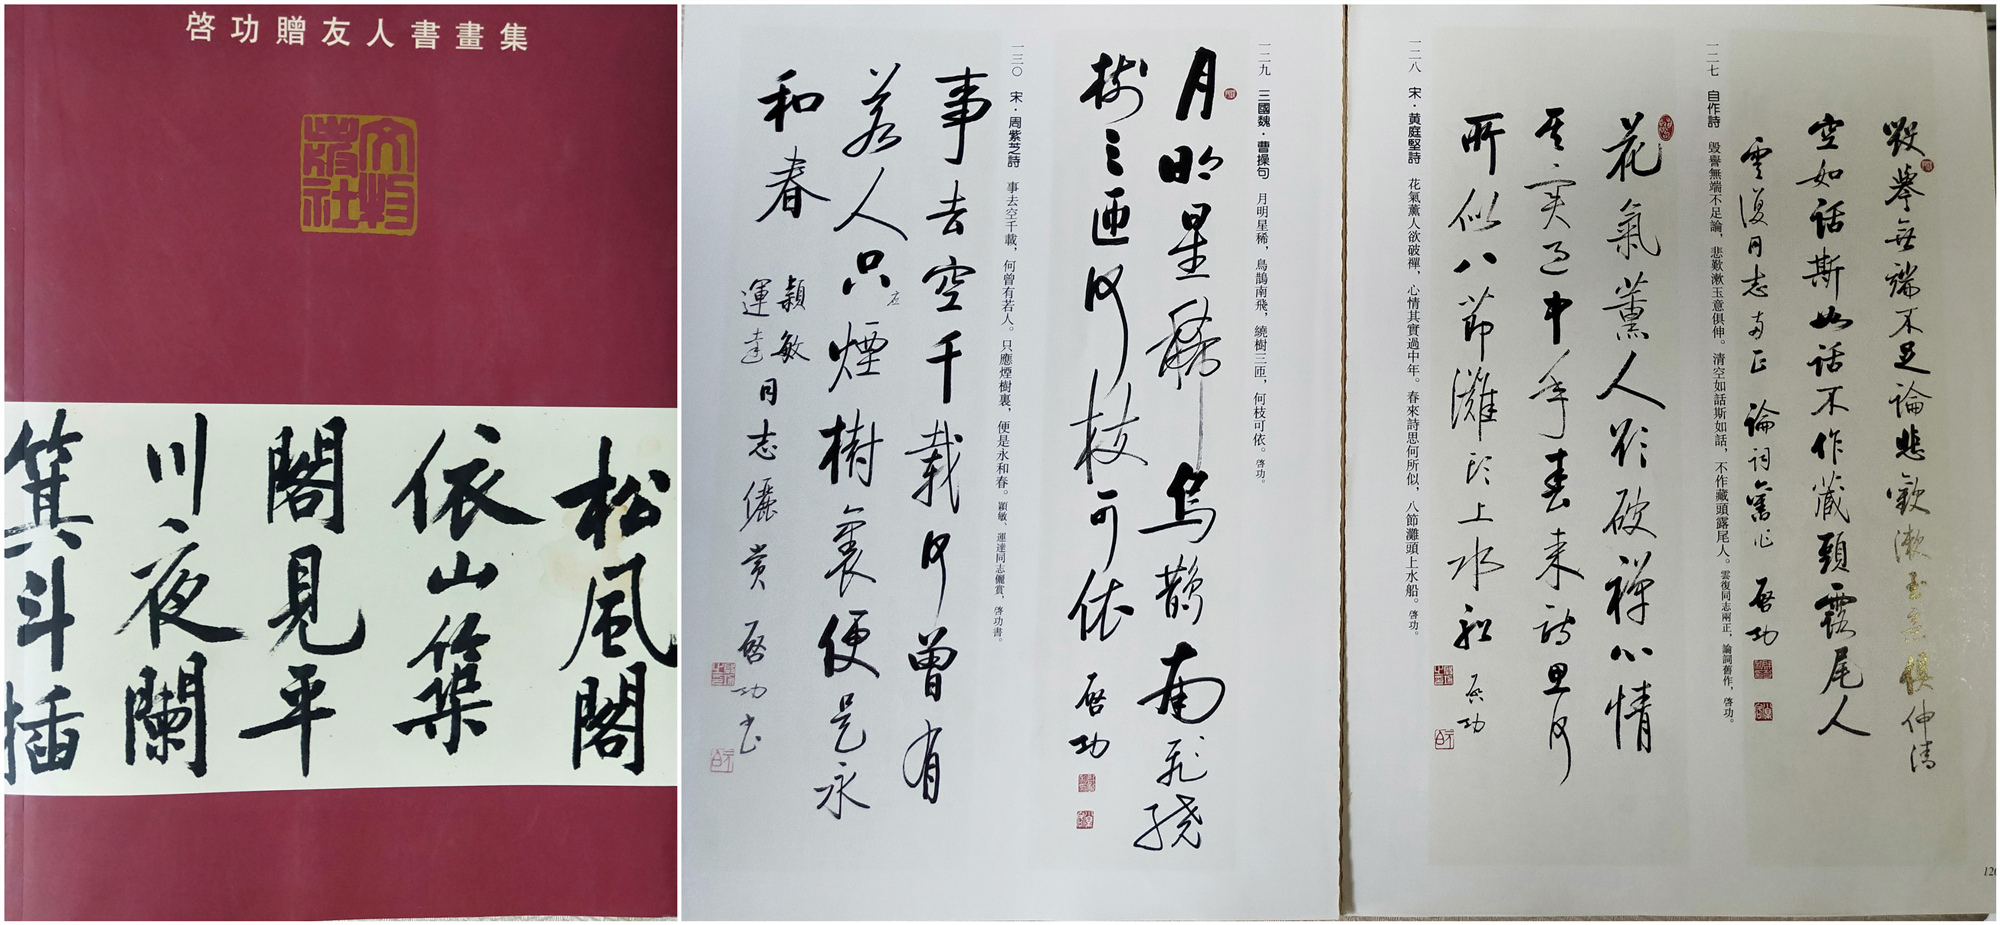 啓功贈友人書畫集
文物
出版社
松風閣
依山築
閣見平
川夜闌
箕斗插
毀譽無端不足論悲歎漱玉意俱伸清
空如話斯如話不作藏頭露尾人
雲復同志兩正 論詞舊作 啓功
一二七 自作詩 毀譽無端不足論，悲歎漱玉意俱伸。清空如話斯如話，不作藏頭露尾人。雲復同志兩正，論詞舊作，啓功。
花氣薰人欲破禪心情
其實過中年春來詩思何
所似八節灘頭上水船 啓功
一二八 宋·黃庭堅詩 花氣薰人欲破禪，心情其實過中年。春來詩思何所似，八節灘頭上水船。啓功。
月明星稀烏鵲南飛繞
樹三匝何枝可依 啓功
一二九 三國魏·曹操句 月明星稀，烏鵲南飛，繞樹三匝，何枝可依。啓功。
事去空千載何曾有
若人只應煙樹裏便是永
和春 穎敏
運達同志儷賞 啓功書
一三〇 宋·周紫芝詩 事去空千載，何曾有若人。只應煙樹裏，便是永和春。穎敏、運達同志儷賞，啓功書。
126